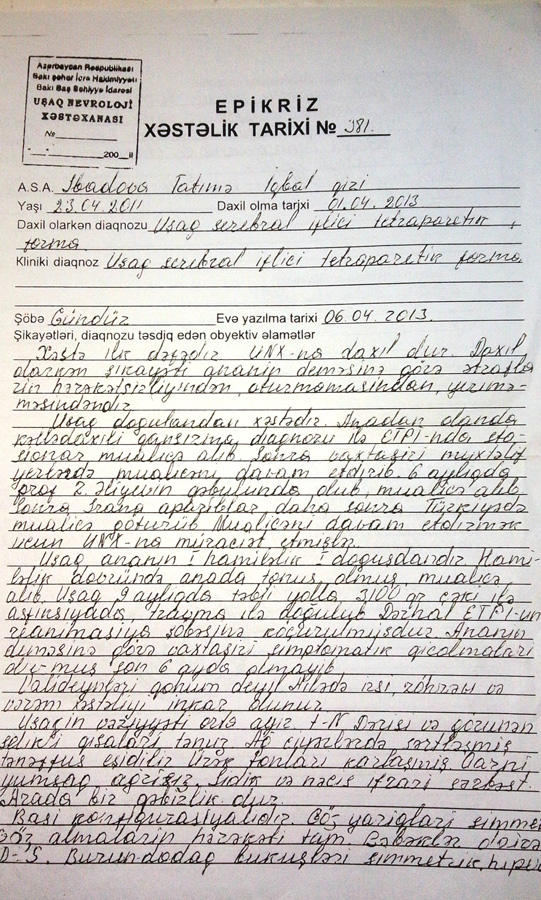 Azərbaycan Respublikası
Bakı şəhər İcra Hakimiyyəti
Bakı Baş Səhiyyə İdarəsi
UŞAQ NEVROLOJİ
XƏSTƏXANASI
№
200 il
EPİKRİZ
XƏSTƏLİK TARİXİ № 381.
A.S.A. İbadova Fatimə İqbal qizi
Yaşı 23.04.2011 Daxil olma tarixi 01.04.2013
Daxil olarkən diaqnozu Uşaq serebral iflici tetraparetik
forma.
Kliniki diaqnoz Uşaq serebral iflici tetraparetik forma
Şöbə Gündüz Evə yazılma tarixi 06.04.2013.
Şikayətləri, diaqnozu təsdiq edən obyektiv əlamətlər
Xəstə ilk dəfədir UNX-na daxil olur. Daxil
olarkən şikayəti ananin deməsinə görə ətrafla
rin hərəkətsizliyindən, oturmamasindan, yerimə-
məsindəndir
Uşaq doğulandan xəstədir. Anadan olanda
kəllədaxili qansızma diaqnozu ilə ETPİ-nda sta-
sionar mualicə alib. Sonra vaxtaşiri muxtəlif
yerlərdə mualicəni davam etdirib. 6 ayliqda
prof Z. Əliyevin qəbulunda olub, mualicə alib
Sonra İrana aparıblar, daha sonra Türkiyədə
mualicə götürüb Mualicəni davam etdirmək
ucun UNX-na müraciət etmişlər.
Uşaq ananın I hamiləlik I doğuşdandır. Hami-
ləlik dovründə anada tonus olmuş, mualicə
alıb. Uşaq 9 ayliqda təbii yolla 3100 qr çəki ilə
asfiksiyada, travma ilə doğulub Dərhal ETPİ-un
reanimasiya şobəsinə köçürülmüşdür. Ananın
deməsinə görə vaxtaşiri simptomatik qicolmalari
olmuş son 6 ayda olmayib
Valideynləri qohum deyil Ailədə irsi, zöhrəvi və
vərəm xəstəliyi inkar olunur.
Uşağin vəziyyəti orta ağır. t-N Dərisi və görunən
selikli qişalari təmiz Ağ ciyərlərdə sərtləşmiş
tənəffus eşidilir Urək tonlari karlaşmiş Qarni
yumşaq ağrisiz. Sidik və nəcis ifrazi sərbəst.
Arada bir qəbizlik olur.
Başi konfiqurasiyalidir. Göz yariqlari simme
Göz almalarin hərəkəti tam. Bəbəklər dairə
D=S. Burun-dodaq bukuşləri simmetrik, hiper